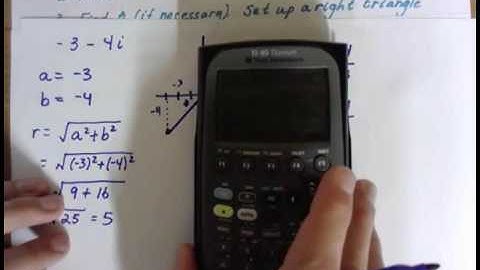 Find A (if necessary). Set up a right triangle
-3 - 4i
a = -3
b = -4
r = √a²+b²
= √(-3)²+(-4)²
√9 + 16
√25 = 5
-3
-4
TI-89 Titanium
Texas Instruments
F1 F2 F3 F4 F5